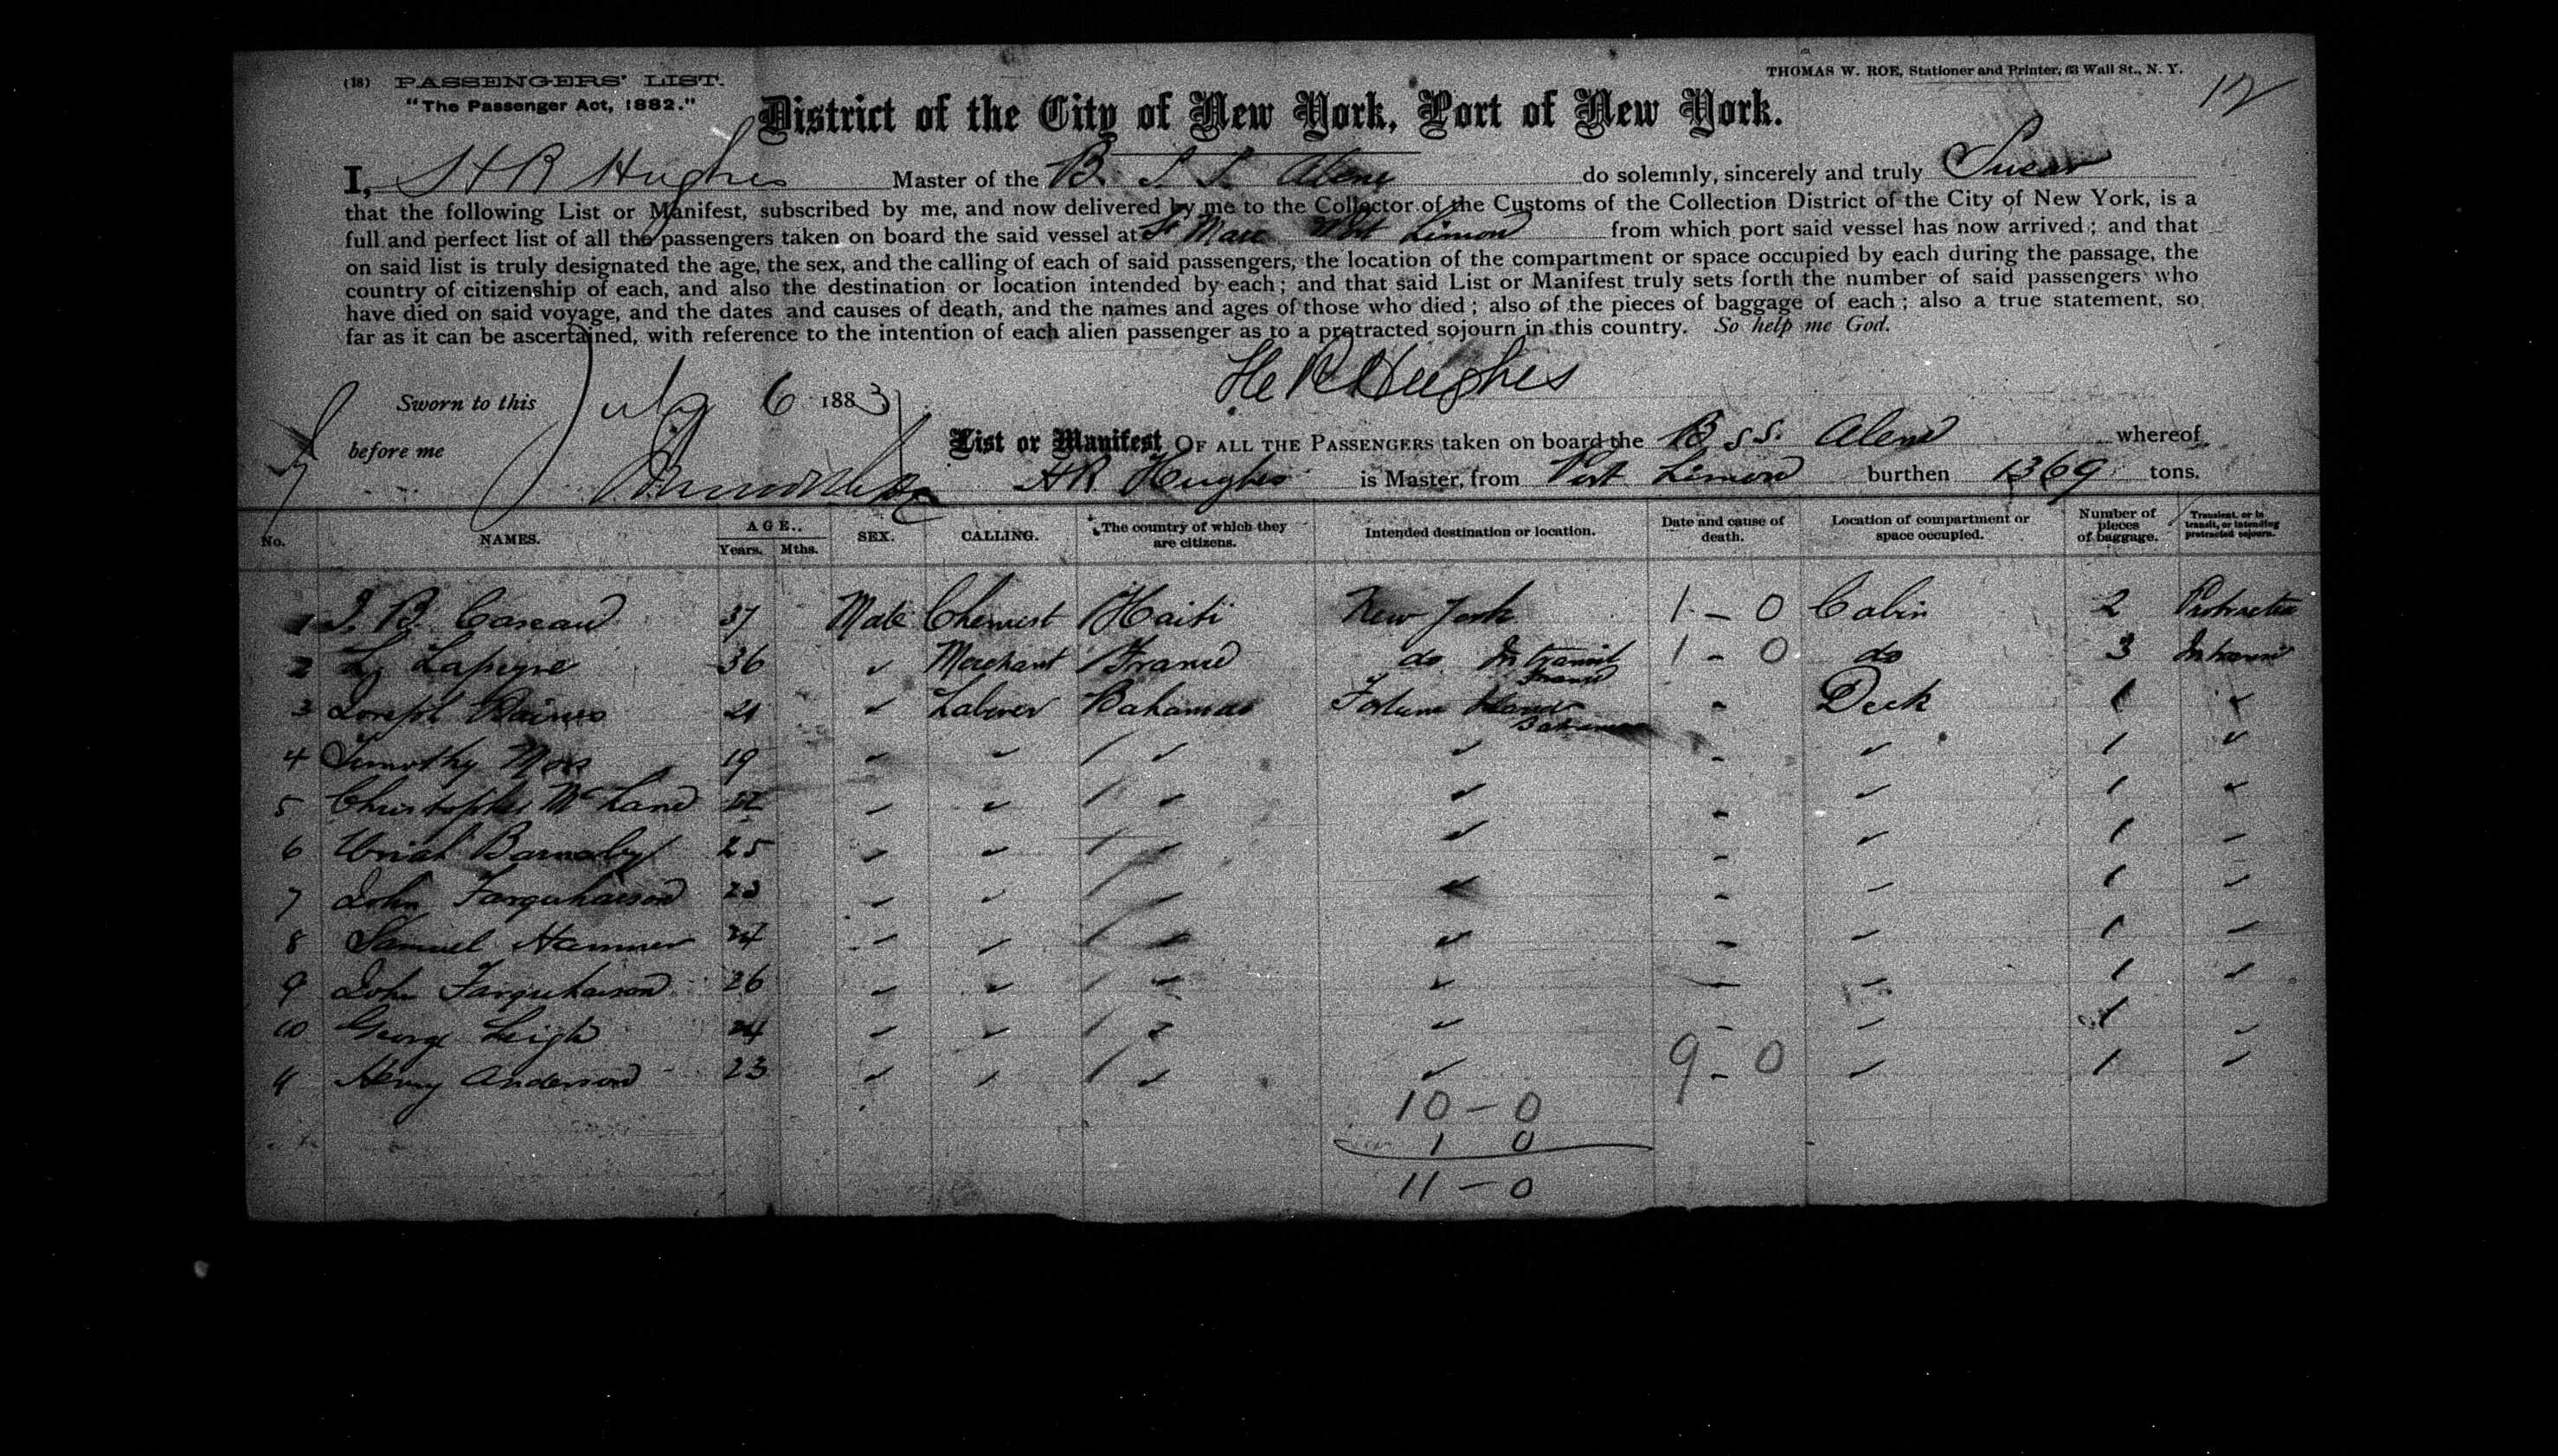 (18) PASSENGERS' LIST.
"The Passenger Act, 1882."
THOMAS W. ROE, Stationer and Printer, 63 Wall St., N. Y.
12
District of the City of New York, Port of New York.
I, H R Hughes Master of the B. S. S. Alene do solemnly, sincerely and truly Swear
that the following List or Manifest, subscribed by me, and now delivered by me to the Collector of the Customs of the Collection District of the City of New York, is a
full and perfect list of all the passengers taken on board the said vessel at St Marc Port Limon from which port said vessel has now arrived; and that
on said list is truly designated the age, the sex, and the calling of each of said passengers, the location of the compartment or space occupied by each during the passage, the
country of citizenship of each, and also the destination or location intended by each; and that said List or Manifest truly sets forth the number of said passengers who
have died on said voyage, and the dates and causes of death, and the names and ages of those who died; also of the pieces of baggage of each; also a true statement, so
far as it can be ascertained, with reference to the intention of each alien passenger as to a protracted sojourn in this country. So help me God.
H R Hughes
Sworn to this July 6 1883
before me
List or Manifest OF ALL THE PASSENGERS taken on board the B S S. Alene whereof
H R. Hughes is Master, from Port Limon burthen 1369 tons.
No. NAMES. AGE. Years. Mths. SEX. CALLING. The country of which they are citizens. Intended destination or location. Date and cause of death. Location of compartment or space occupied. Number of pieces of baggage. Transient, or in transit, or intending protracted sojourn.
1 J. B. 37 Male Chemist Haiti New York 1 - 0 Cabin 2 Protracted
2 L. Lapeyre 36 ✓ Merchant France do In transit France 1 - 0 do 3 In transit
3 Joseph Rainus 21 ✓ Laborer Bahamas Fortune Island Bahamas - Deck 1 ✓
4 Timothy Moss 19 ✓ ✓ / ✓ ✓ - ✓ 1 ✓
5 Christopher McLane 22 ✓ ✓ / ✓ ✓ - ✓ 1 ✓
6 Uriah Barnaby 25 ✓ ✓ / ✓ ✓ - ✓ 1 ✓
7 John Farquharson 23 ✓ ✓ / ✓ ✓ - ✓ 1 ✓
8 Samuel Hanner 24 ✓ ✓ / ✓ ✓ - ✓ 1 ✓
9 John Farquharson 26 ✓ ✓ / ✓ ✓ - ✓ 1 ✓
10 George Leigh 24 ✓ ✓ / ✓ ✓ - ✓ 1 ✓
11 Henry Anderson 23 ✓ ✓ / ✓ ✓ 9 - 0 ✓ 1 ✓
10 - 0
1 0
11 - 0